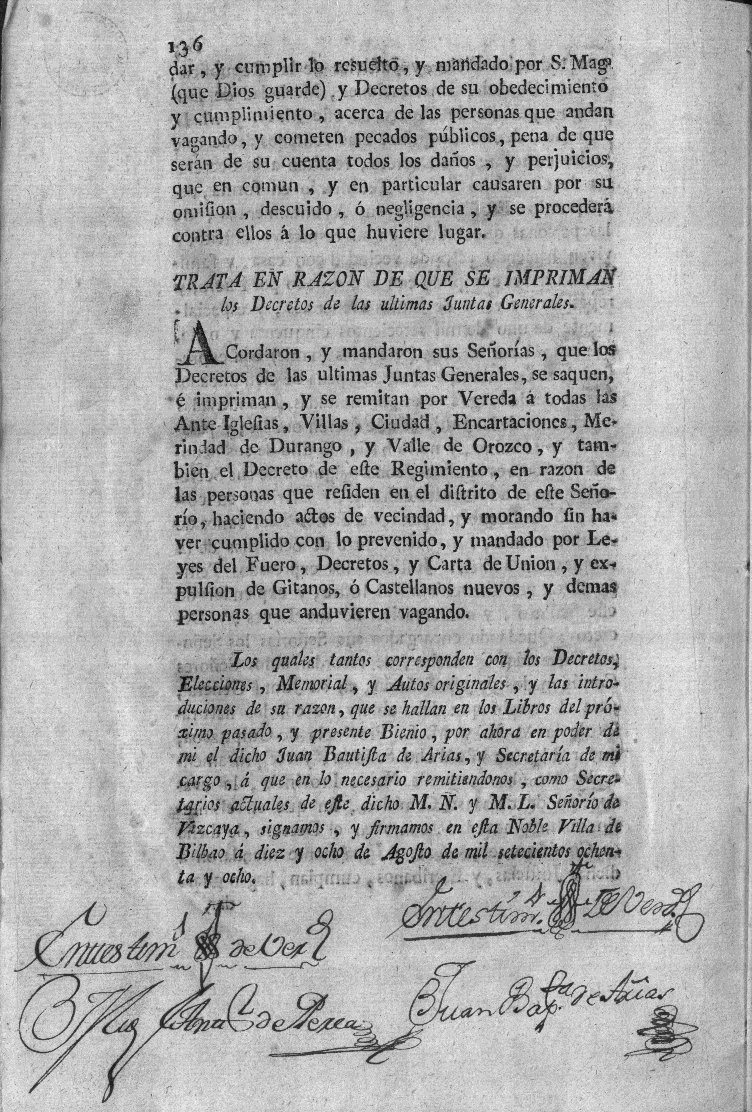 136
dar, y cumplir lo resuelto, y mandado por S. Magd.
(que Dios guarde) y Decretos de su obedecimiento
y cumplimiento, acerca de las personas que andan
vagando, y cometen pecados públicos, pena de que
serán de su cuenta todos los daños, y perjuicios,
que en comun, y en particular causaren por su
omision, descuido, ó negligencia, y se procederá
contra ellos á lo que huviere lugar.
TRATA EN RAZON DE QUE SE IMPRIMAN
los Decretos de las ultimas Juntas Generales.
ACordaron, y mandaron sus Señorías, que los
Decretos de las ultimas Juntas Generales, se saquen,
é impriman, y se remitan por Vereda á todas las
Ante-Iglesias, Villas, Ciudad, Encartaciones, Me-
rindad de Durango, y Valle de Orozco, y tam-
bien el Decreto de eſte Regimiento, en razon de
las personas que residen en el diſtrito de eſte Seño-
río, haciendo actos de vecindad, y morando ſin ha-
ver cumplido con lo prevenido, y mandado por Le-
yes del Fuero, Decretos, y Carta de Union, y ex-
pulſion de Gitanos, ó Castellanos nuevos, y demas
personas que anduvieren vagando.
Los quales tantos corresponden con los Decretos,
Elecciones, Memorial, y Autos originales, y las intro-
duciones de su razon, que se hallan en los Libros del pró-
ximo pasado, y presente Bienio, por ahora en poder de
mi el dicho Juan Bautiſta de Arias, y Secretaría de mi
cargo, á que en lo necesario remitiendonos, como Secre-
tarios actuales de eſte dicho M. N. y M. L. Señorío de
Vizcaya, signamos, y firmamos en eſta Noble Villa de
Bilbao á diez y ocho de Agoſto de mil setecientos ochen-
ta y ocho.
En testimo. de Verd.
En testimo. de Verd.
de Perea
Juan Bapta. de Arias